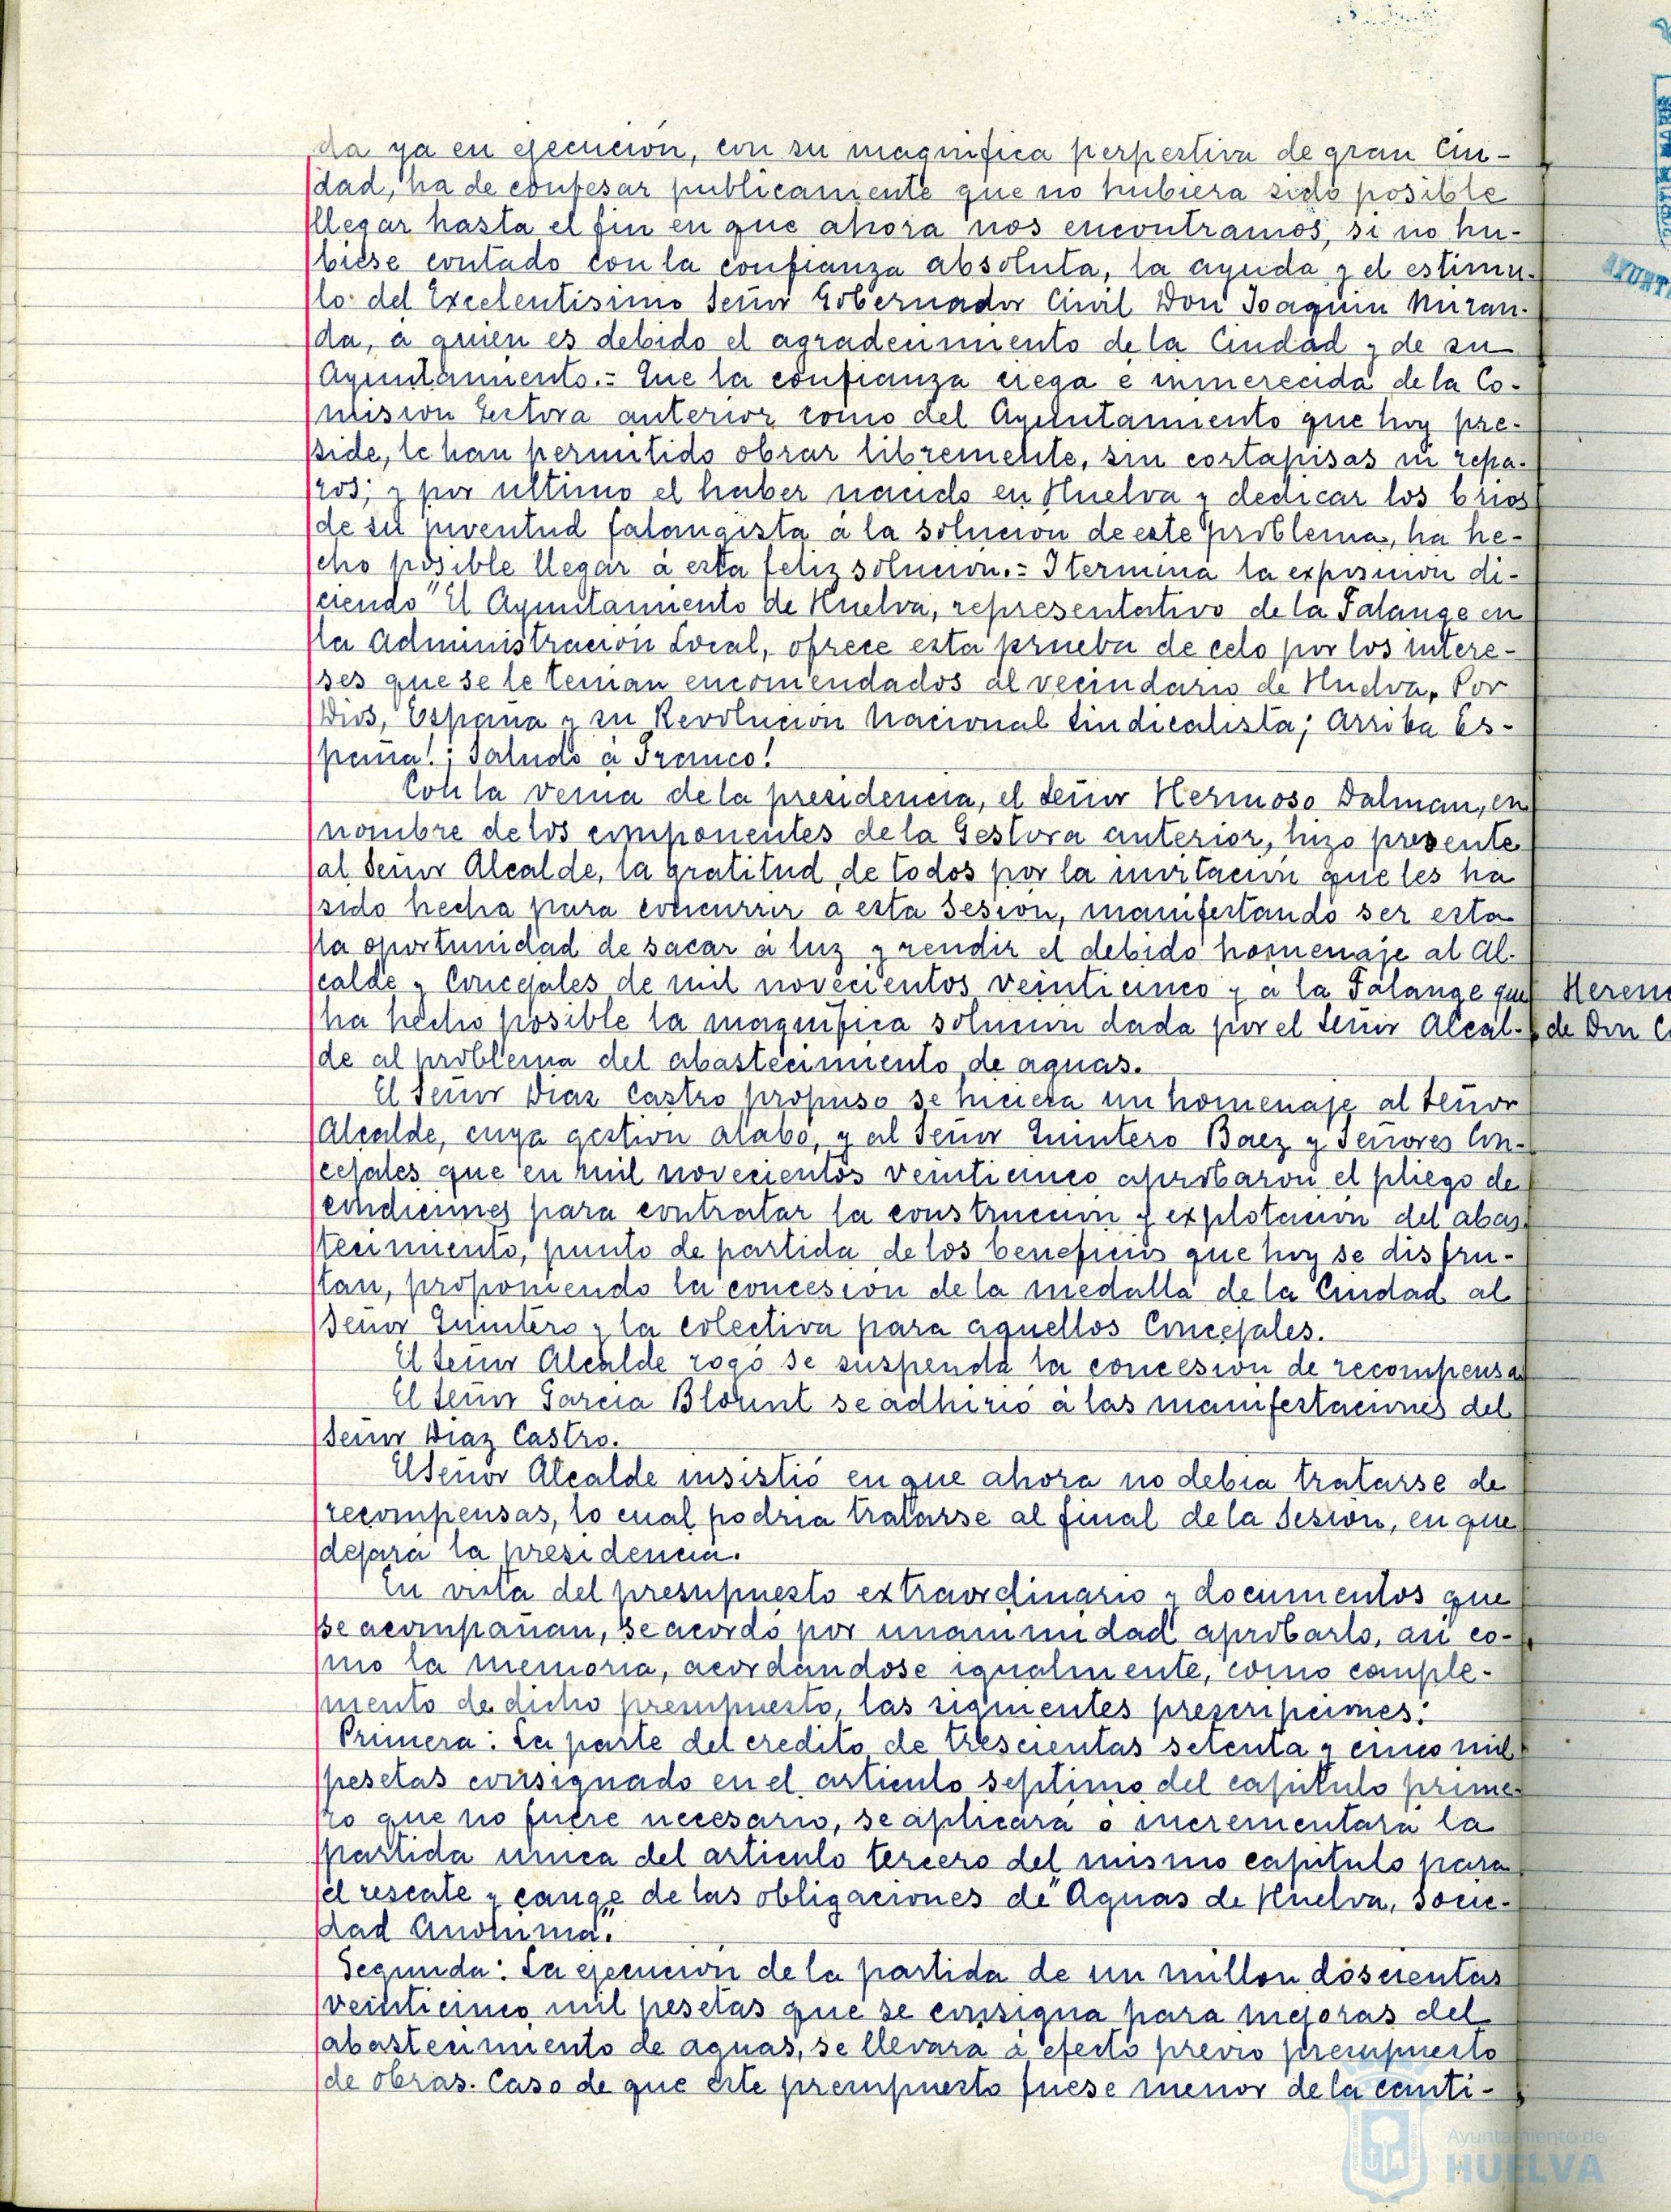 da ya en ejecución, con su magnifica perpestiva de gran Ciu-
dad, ha de confesar publicamente que no hubiera sido posible
llegar hasta el fin en que ahora nos encontramos, si no hu-
biese contado con la confianza absoluta, la ayuda y el estimu-
lo del Excelentisimo Señor Gobernador Civil Don Joaquin Miran-
da, a quien es debido el agradecimiento de la Ciudad y de su
Ayuntamiento.= Que la confianza ciega é inmerecida de la Co-
mision Gestora anterior como del Ayuntamiento que hoy pre-
side, le han permitido obrar libremente, sin cortapisas ni repa-
ros; y por ultimo el haber nacido en Huelva y dedicar los brios
de su juventud falangista á la solucion de este problema, ha he-
cho posible llegar á esta feliz solucion.= I termina la exposicion di-
ciendo "El Ayuntamiento de Huelva, representativo de la Falange en
la Administracion Local, ofrece esta prueba de celo por los intere-
ses que se le tenian encomendados al vecindario de Huelva, Por
Dios, España y su Revolucion Nacional Sindicalista; Arriba Es-
paña! ¡Saludo a Franco!
Con la venia de la presidencia, el Señor Hermoso Dalman, en
nombre de los componentes de la Gestora anterior, hizo presente
al Señor Alcalde, la gratitud de todos por la invitación que les ha
sido hecha para concurrir a esta Sesion, manifestando ser esta
la oportunidad de sacar á luz y rendir el debido homenaje al Al-
calde y Concejales de mil novecientos veinticinco y a la Falange que
ha hecho posible la magnifica solucion dada por el Señor Alcal-
de al problema del abastecimiento de aguas.
El Señor Diaz Castro propuso se hiciera un homenaje al Señor
Alcalde, cuya gestion alabó, y al Señor Quintero Baez y Señores Con-
cejales que en mil novecientos veinticinco aprobaron el pliego de
condiciones para contratar la construccion y explotacion del abas-
tecimiento, punto de partida de los beneficios que hoy se disfru-
tan, proponiendo la concesion de la medalla de la Ciudad al
Señor Quintero y la colectiva para aquellos Concejales.
El Señor Alcalde rogó se suspenda la concesion de recompensas
El Señor Garcia Blount se adhirió á las manifestaciones del
Señor Diaz Castro.
El Señor Alcalde insistió en que ahora no debia tratarse de
recompensas, lo cual podria tratarse al final de la Sesion, en que
dejará la presidencia.
En vista del presupuesto extraordinario y documentos que
se acompañan, se acordó por unanimidad aprobarlo, asi co-
mo la memoria, acordándose igualmente, como comple-
mento de dicho presupuesto, las siguientes prescripciones:
Primera: La parte del credito de trescientas setenta y cinco mil
pesetas consignado en el articulo septimo del capitulo prime-
ro que no fuere necesario, se aplicará o incrementará la
partida unica del articulo tercero del mismo capitulo para
el rescate y cange de las obligaciones de "Aguas de Huelva, Socie-
dad Anonima".
Segunda: La ejecucion de la partida de un millon doscientas
veinticinco mil pesetas que se consigna para mejoras del
abastecimiento de aguas, se llevara á efecto previo presupuesto
de obras. Caso de que este presupuesto fuese menor de la canti-
Ayuntamiento de
HUELVA